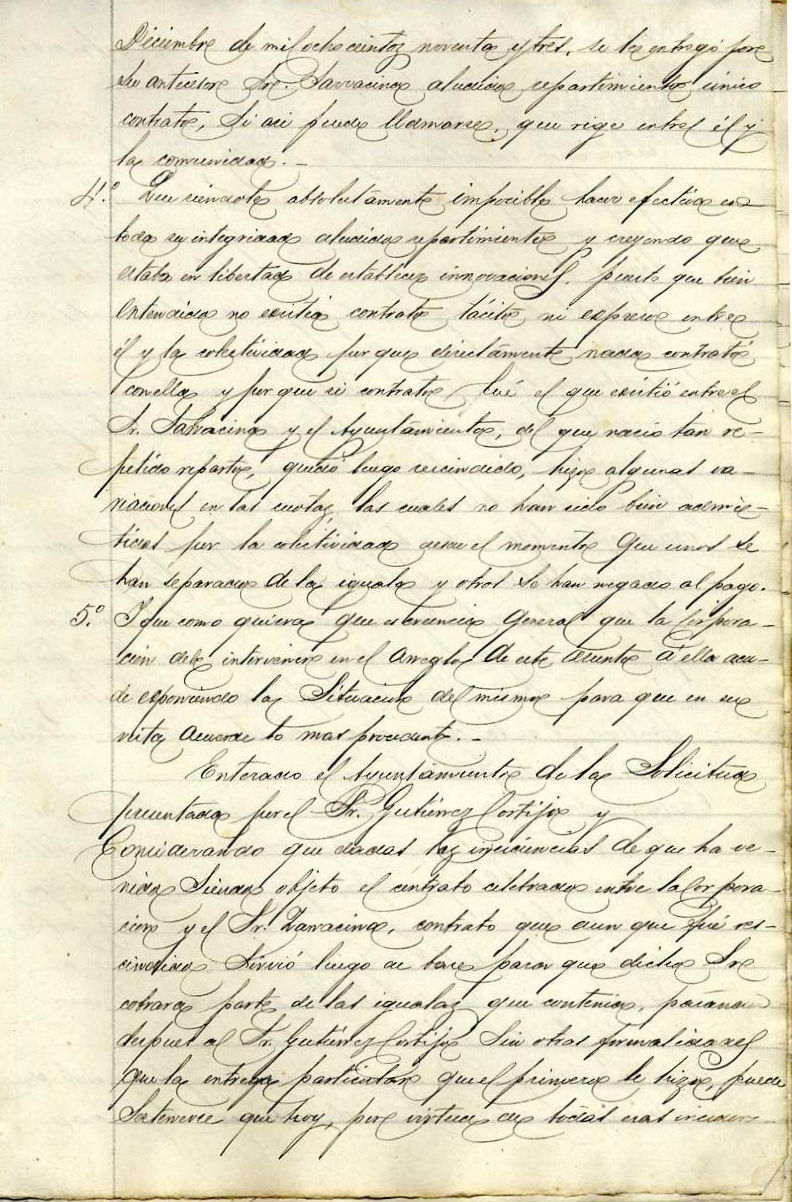 Diciembre de mil ochocientos noventa y tres, se les entregó por
su antecesor Sr. Sarracina aludido repartimiento único
contrato, si asi puede llamarse, que rige entre él y
la comunidad. -
4.º Que siendole absolutamente imposible hacer efectivo en
toda su integridad aludido repartimiento y creyendo que
estaba en libertad de establecer innovaciones, puesto que bien
entendido no existia contrato tácito ni expreso entre
él y la colectividad por que directamente nada contrató
con ella y por que si contrato fué el que existió entre el
Sr. Sarracina y el Ayuntamiento, del que nació tan re-
petido reparto, quedó luego rescindido, hizo algunas va-
riaciones en las cuotas las cuales no han sido bien admi-
tidas por la colectividad desde el momento que unos se
han separado de la iguala y otros se han negado al pago.
5.º Y que como quiera que es creencia general que la Corpora-
cion debe intervenir en el arreglo de este asunto á ella acu-
de esponiendo la Situacion del mismo para que en su
vista acuerde lo mas procedente. -
Enterado el Ayuntamiento de la Solicitud
presentada por el Sr. Gutiérrez Cortijo y
Considerando que dadas las incidencias de que ha ve-
nido Siendo objeto el contrato celebrado entre la Corpora-
cion y el Sr. Zarracina, contrato que aun que fué res-
cindido Sirvió luego de base para que dicho Sr
cobrara parte de las igualas que contenia, pasando
despues al Sr. Gutiérrez Cortijo Sin otras formalidades
que la entrega particular que el primero le hizo, puede
Sostenerse que hoy, por virtud de todas esas inciden-